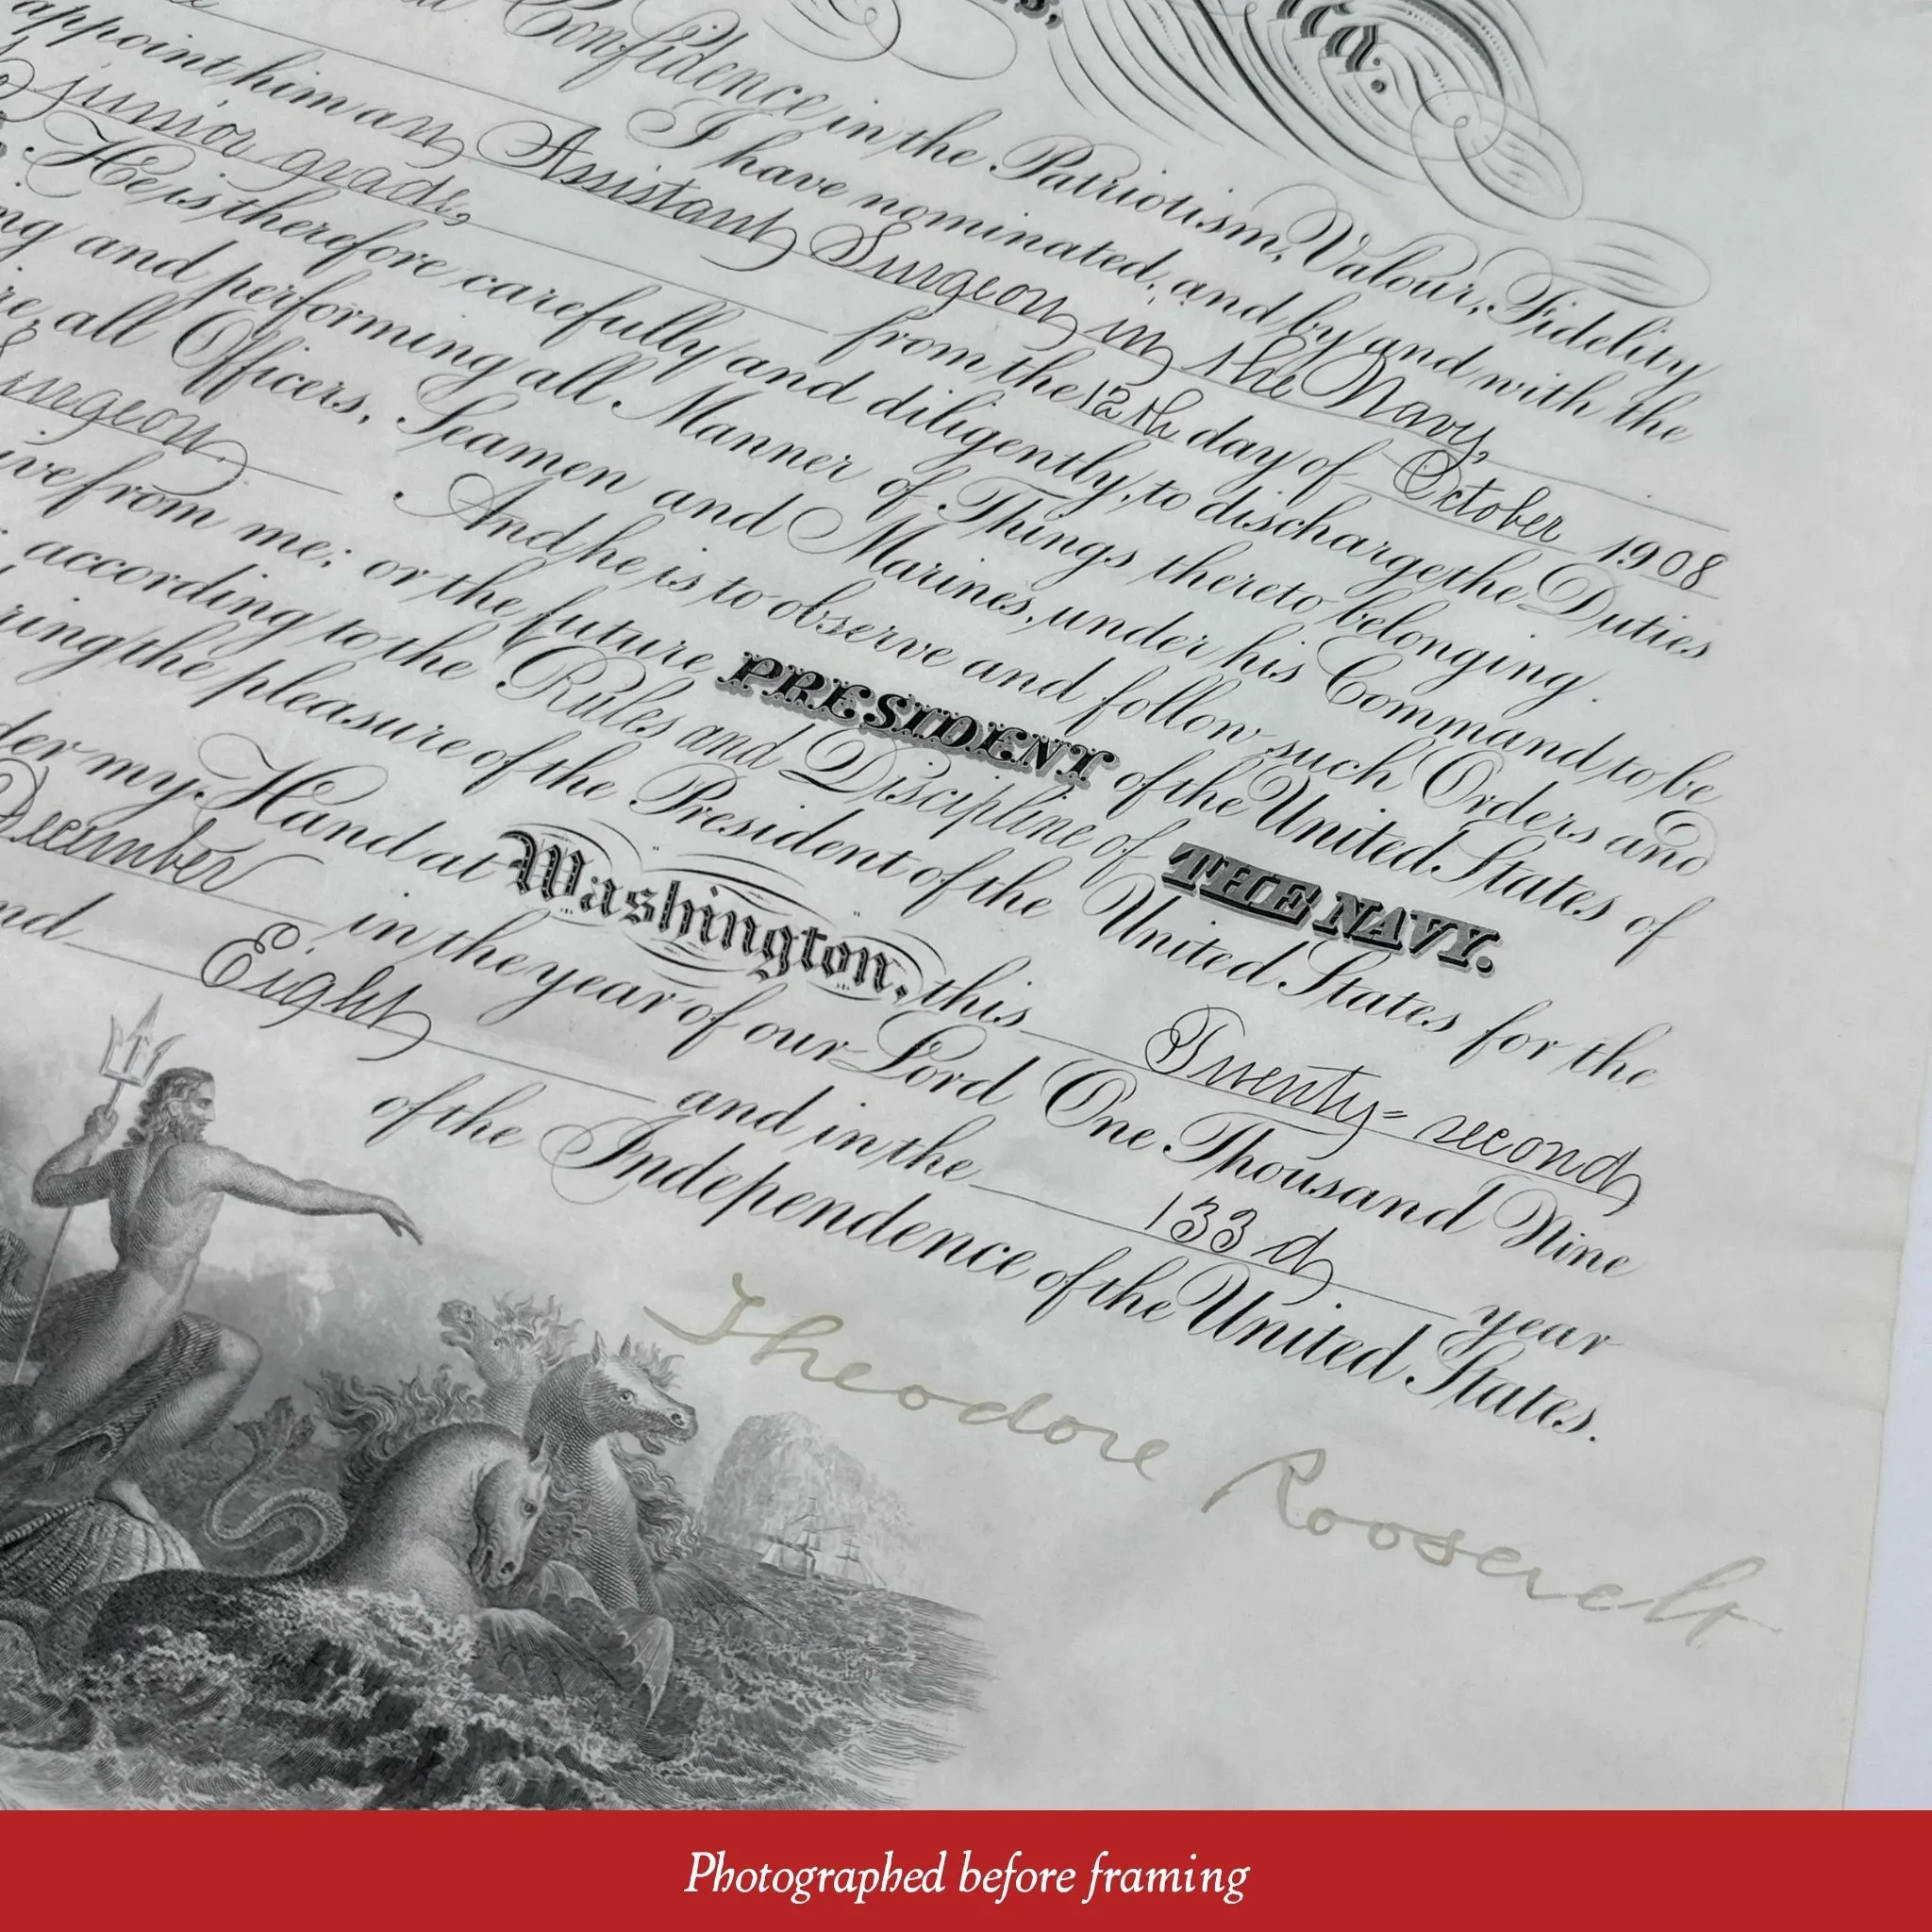 Confidence in the Patriotism, Valour, Fidelity
I have nominated, and by and with the
appoint him an Assistant Surgeon in the Navy,
junior grade, from the 12th day of October 1908
He is therefore carefully and diligently, to discharge the Duties
and performing all Manner of Things thereto belonging.
all Officers, Seamen and Marines, under his Command to be
And he is to observe and follow such Orders and
from me; or the future PRESIDENT of the United States of
according to the Rules and Discipline of THE NAVY.
the pleasure of the President of the United States for the
my Hand at Washington, this Twenty-second
December in the year of our Lord One Thousand Nine
Eight and in the 133d year
of the Independence of the United States.
Theodore Roosevelt
Photographed before framing